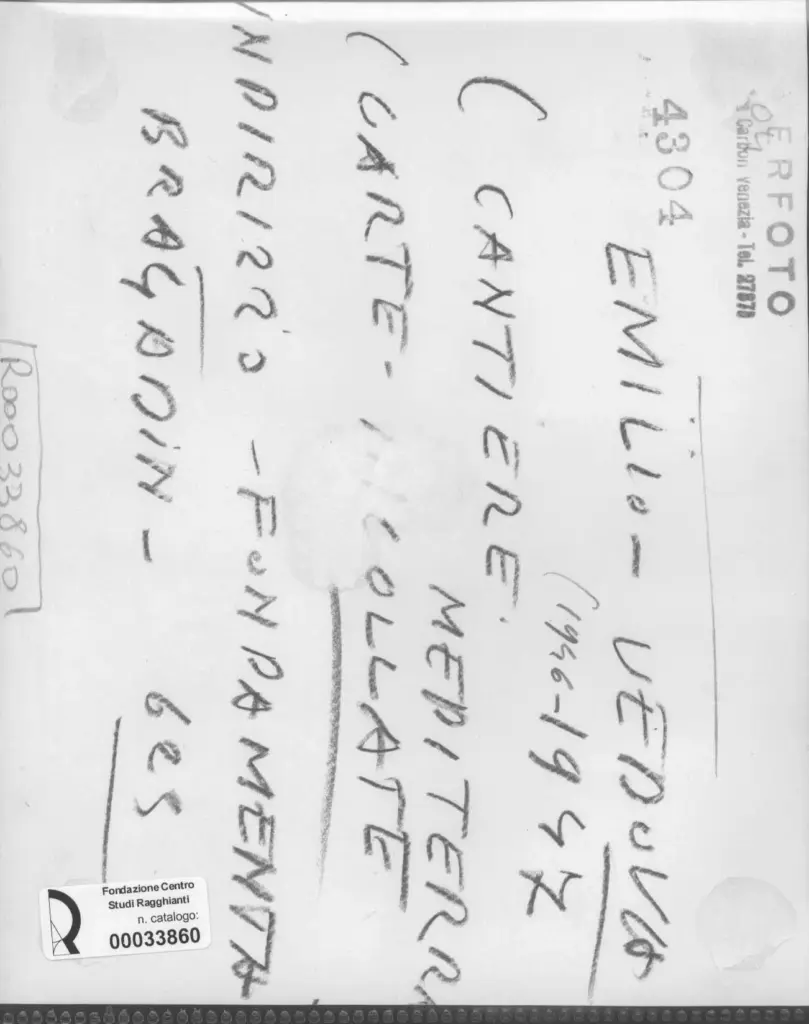 ERFOTO
Carbon venezia - Tel. 27870
4304
EMILIO - VEDOVA
(1946-1947
( CANTIERE.
MEDITERR
( CARTE - COLLATE
NDIRIZZO - FONDAMENTA
BRAGADIN - 625
R00033860
Fondazione Centro
Studi Ragghianti
n. catalogo:
00033860